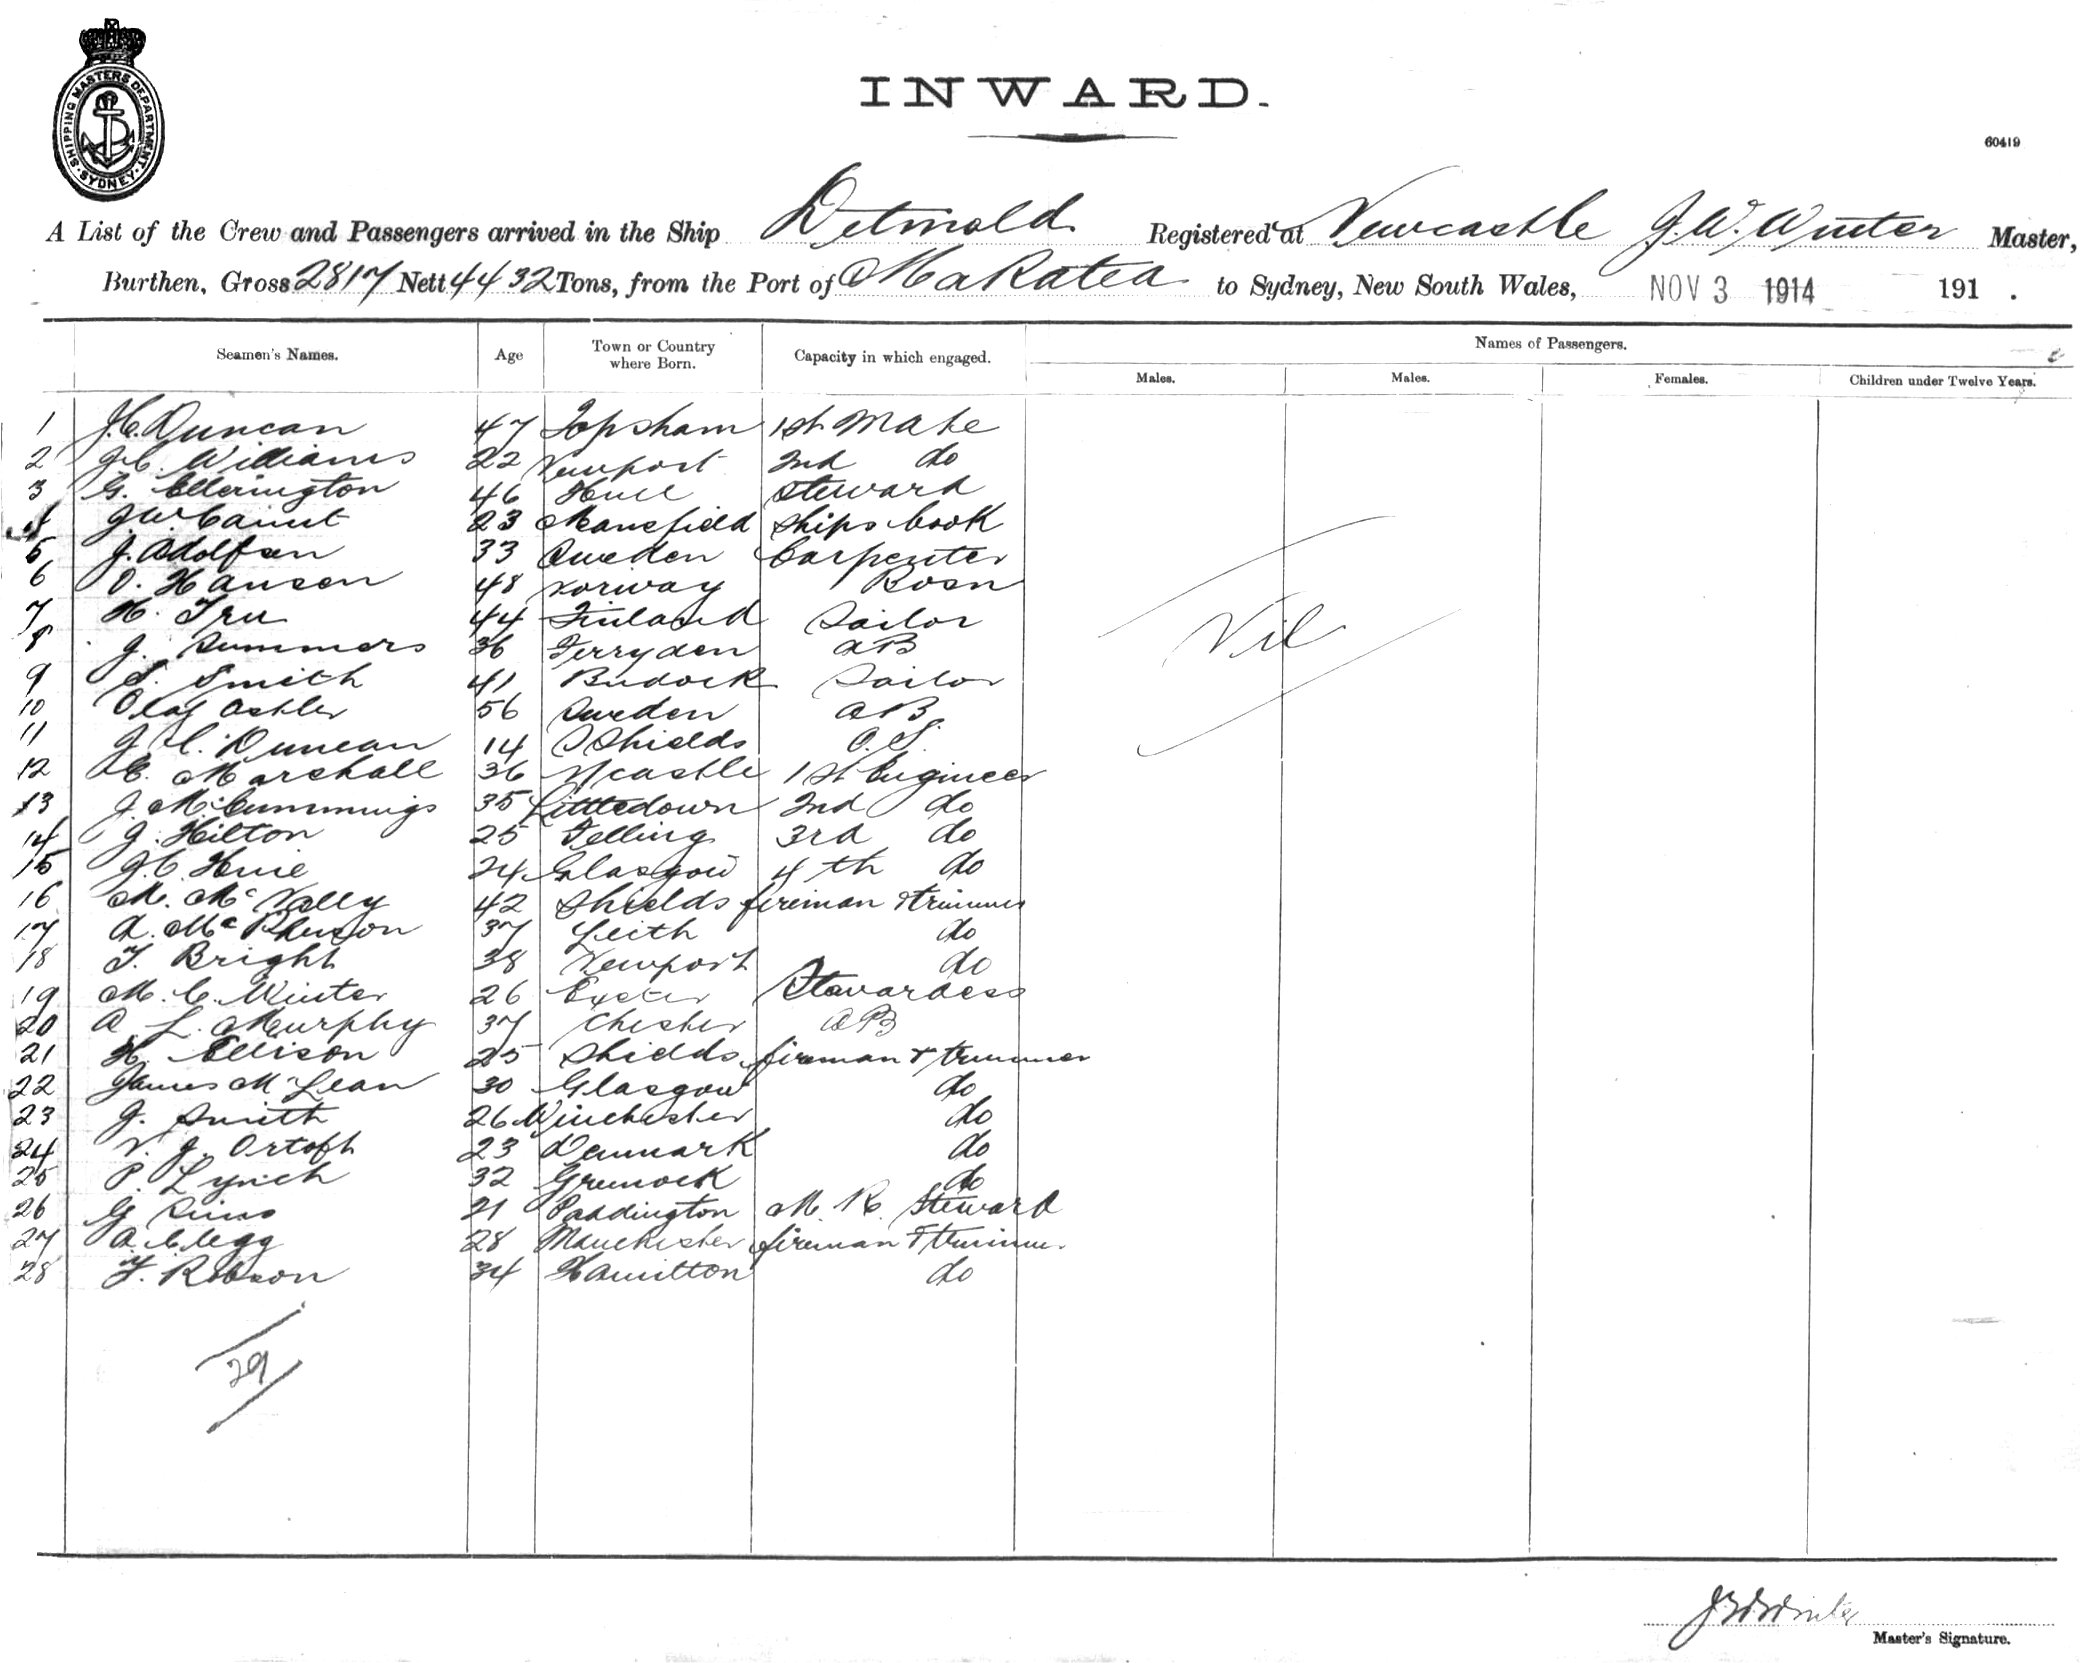 SHIPPING MASTERS DEPARTMENT. SYDNEY.
INWARD.
60419
A List of the Crew and Passengers arrived in the Ship Detmold Registered at Newcastle J. W. Winter Master,
Burthen, Gross 2817 Nett 4432 Tons, from the Port of Makatea to Sydney, New South Wales, NOV 3 1914 191 .
Seamen's Names. Age Town or Country where Born. Capacity in which engaged. Names of Passengers.
Males. Males. Females. Children under Twelve Years.
1 J. C. Duncan 47 Topsham 1st Mate
2 J. C. Williams 22 Newport 2nd do
3 G. Ellerington 46 Hull Steward
4 J. W. 23 Mansfield Ships Cook
5 J. Adolfsen 33 Sweden Carpenter
6 O. Hansen 48 Norway Bosn
7 H. 44 Finland Sailor
8 J. Summers 36 Ferryden AB
9 S. Smith 41 Budock Sailor
10 Olaf 56 Sweden AB
11 J. C. Duncan 14 S Shields O.S.
12 C. Marshall 36 Ncastle 1st Engineer
13 J. McCummings 35 Littledown 2nd do
14 J. Hilton 25 Felling 3rd do
15 J. C. Huie 24 Glasgow 4th do
16 M. McNally 42 Shields fireman & trimmer
17 A. McPherson 37 Leith do
18 T. Bright 38 Newport do
19 M. C. Winter 26 Exeter Stewardess
20 A. L. Murphy 37 Chester AB
21 H. Ellison 25 Shields fireman & trimmer
22 James McLean 30 Glasgow do
23 J. Smith 26 Winchester do
24 V. J. Ortoft 23 Denmark do
25 P. Lynch 32 Greenock do
26 G. Sims 21 Paddington M. R. Steward
27 A. Clegg 28 Manchester fireman & trimmer
28 T. Robson 34 Hamilton do
Nil
29
J W Winter
Master's Signature.